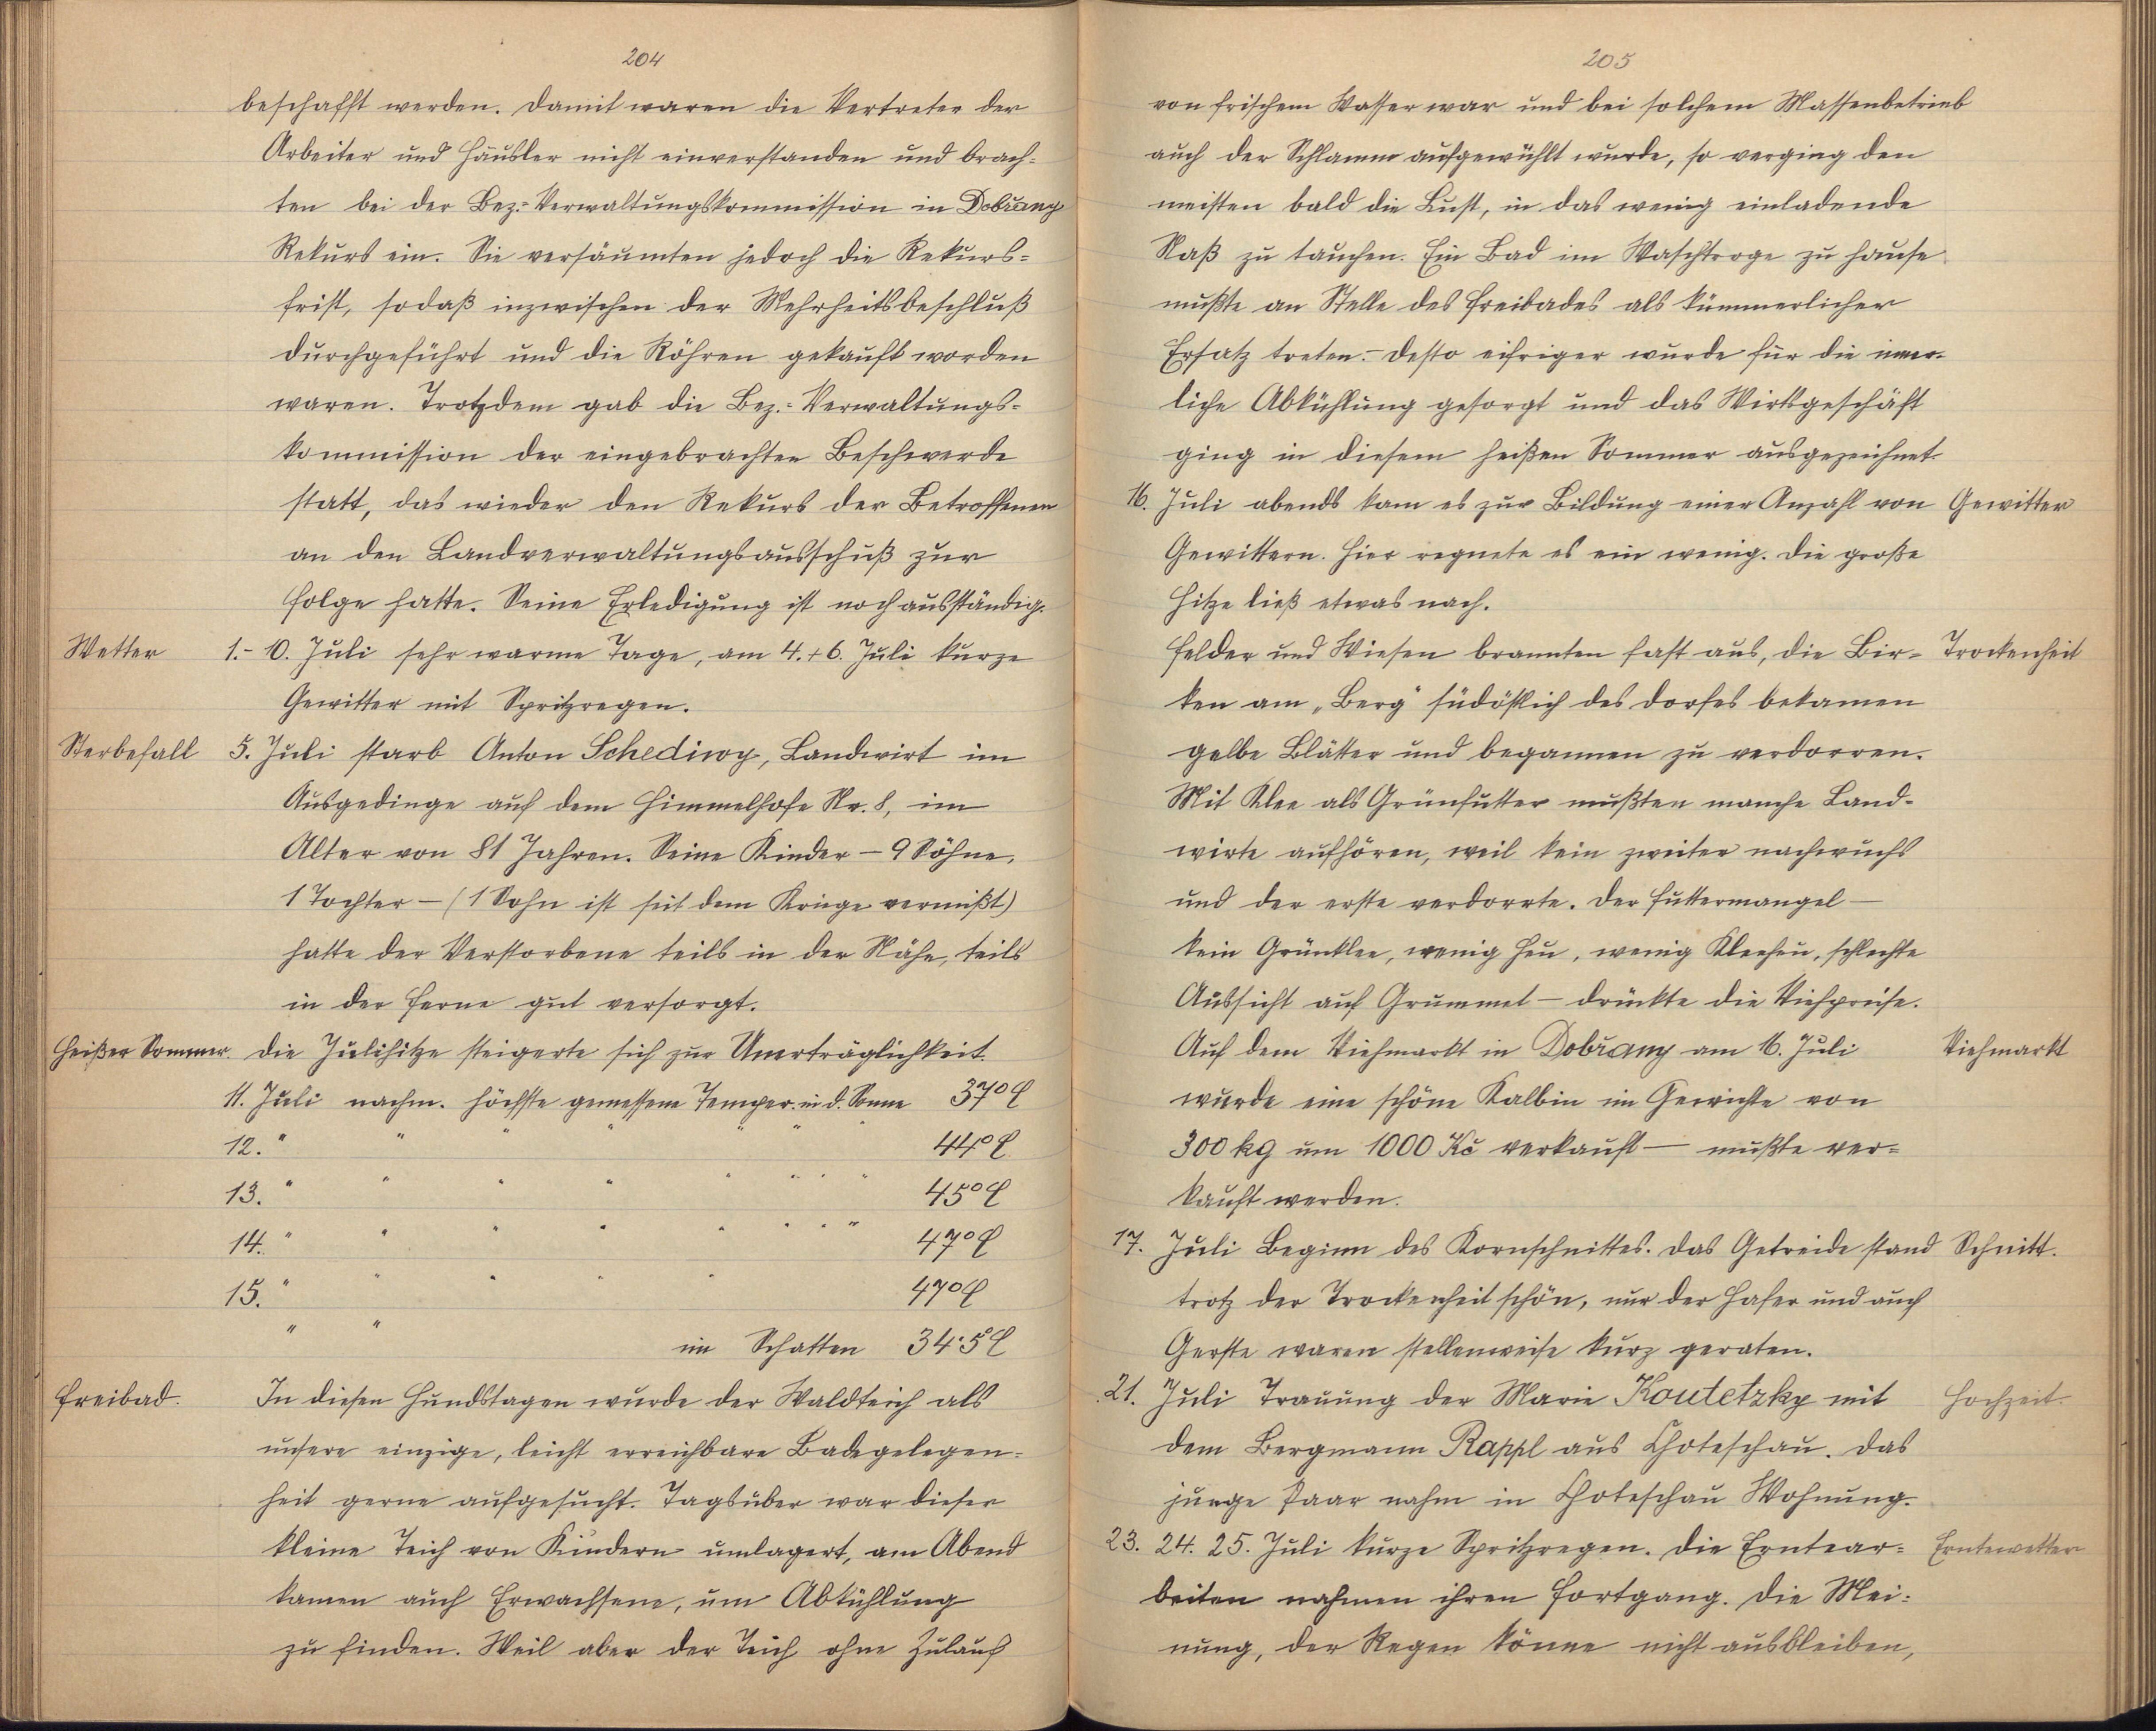 204
beschafft werden. Damit waren die Vertreter der
Arbeiter und Häusler nicht einverstanden und brach-
ten bei der Bez.-Verwaltungskommission in Dobřany
Rekurs ein. Sie versäumten jedoch die Rekurs-
frist, sodaß inzwischen der Mehrheitsbeschluß
durchgeführt und die Röhren gekauft worden
waren. Trotzdem gab die Bez.-Verwaltungs-
kommission der eingebrachten Beschwerde
statt, das wieder den Rekurs der Betroffenen
an den Landverwaltungsausschuß zur
Folge hatte. Seine Erledigung ist noch ausständig.
Wetter 1.-10. Juli sehr warme Tage, am 4.+6. Juli kurze
Gewitter mit Spritzregen.
Sterbefall 5. Juli starb Anton Schediwy, Landwirt im
Ausgedinge auf dem Himmelhofe Nr. 8, im
Alter von 81 Jahren. Seine Kinder – 9 Söhne,
1 Tochter – (1 Sohn ist seit dem Kriege vermißt)
hatte der Verstorbene teils in der Nähe, teils
in der Ferne gut versorgt.
Heißer Sommer. Die Julihitze steigerte sich zur Unerträglichkeit.
11. Juli nachm. höchste gemessene Temper. in d. Sonne 37° C
12. " " " " " " " 44° C
13. " " " " " " " " " 45° C
14. " " " " " " " " 47° C
15. " " " " " 47° C
" " im Schatten 34·5° C
Freibad. In diesen Hundstagen wurde der Waldteich als
unsere einzige, leicht erreichbare Badegelegen-
heit gerne aufgesucht. Tagsüber war dieser
kleine Teich von Kindern umlagert, am Abend
kamen auch Erwachsene, um Abkühlung
zu finden. Weil aber der Teich ohne Zulauf
205
von frischem Wasser war und bei solchem Massenbetrieb
auch der Schlamm aufgewühlt wurde, so verging den
meisten bald die Lust, in das wenig einladende
Naß zu tauchen. Ein Bad im Waschtroge zu Hause
mußte an Stelle des Freibades als kümmerlicher
Ersatz treten. – Desto eifriger wurde für die inner-
liche Abkühlung gesorgt und das Wirtsgeschäft
ging in diesem heißen Sommer ausgezeichnet.
16. Juli abends kam es zur Bildung einer Anzahl von Gewitter
Gewittern. Hier regnete es ein wenig. Die große
Hitze ließ etwas nach.
Felder und Wiesen brannten fast aus, die Bir- Trockenheit
ken am „Berg“ südöstlich des Dorfes bekamen
gelbe Blätter und begannen zu verdorren.
Mit Klee als Grünfutter mußten manche Land-
wirte aufhören, weil kein zweiter nachwuchs
und der erste verdorrte. Der Futtermangel –
kein Grünklee, wenig Heu, wenig Kleeheu, schlechte
Aussicht auf Grummet – drückte die Viehpreise.
Auf dem Viehmarkt in Dobřany am 16. Juli Viehmarkt
wurde eine schöne Kalbin im Gewichte von
300 kg um 1000 Kč verkauft – mußte ver-
kauft werden.
17. Juli Beginn des Kornschnittes. Das Getreide stand Schnitt.
trotz der Trockenheit schön, nur der Hafer und auch
Gerste waren stellenweise kurz geraten.
21. Juli Trauung der Marie Koutetzky mit Hochzeit.
dem Bergmann Rappl aus Choteschau. Das
junge Paar nahm in Choteschau Wohnung.
23. 24. 25. Juli kurze Spritzregen. Die Erntear- Erntewetter
beiten nahmen ihren Fortgang. Die Mei-
nung, der Regen könne nicht ausbleiben,